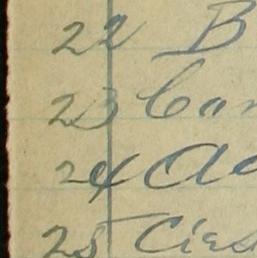 22 B
23 Con
24 Ad
25 Cies